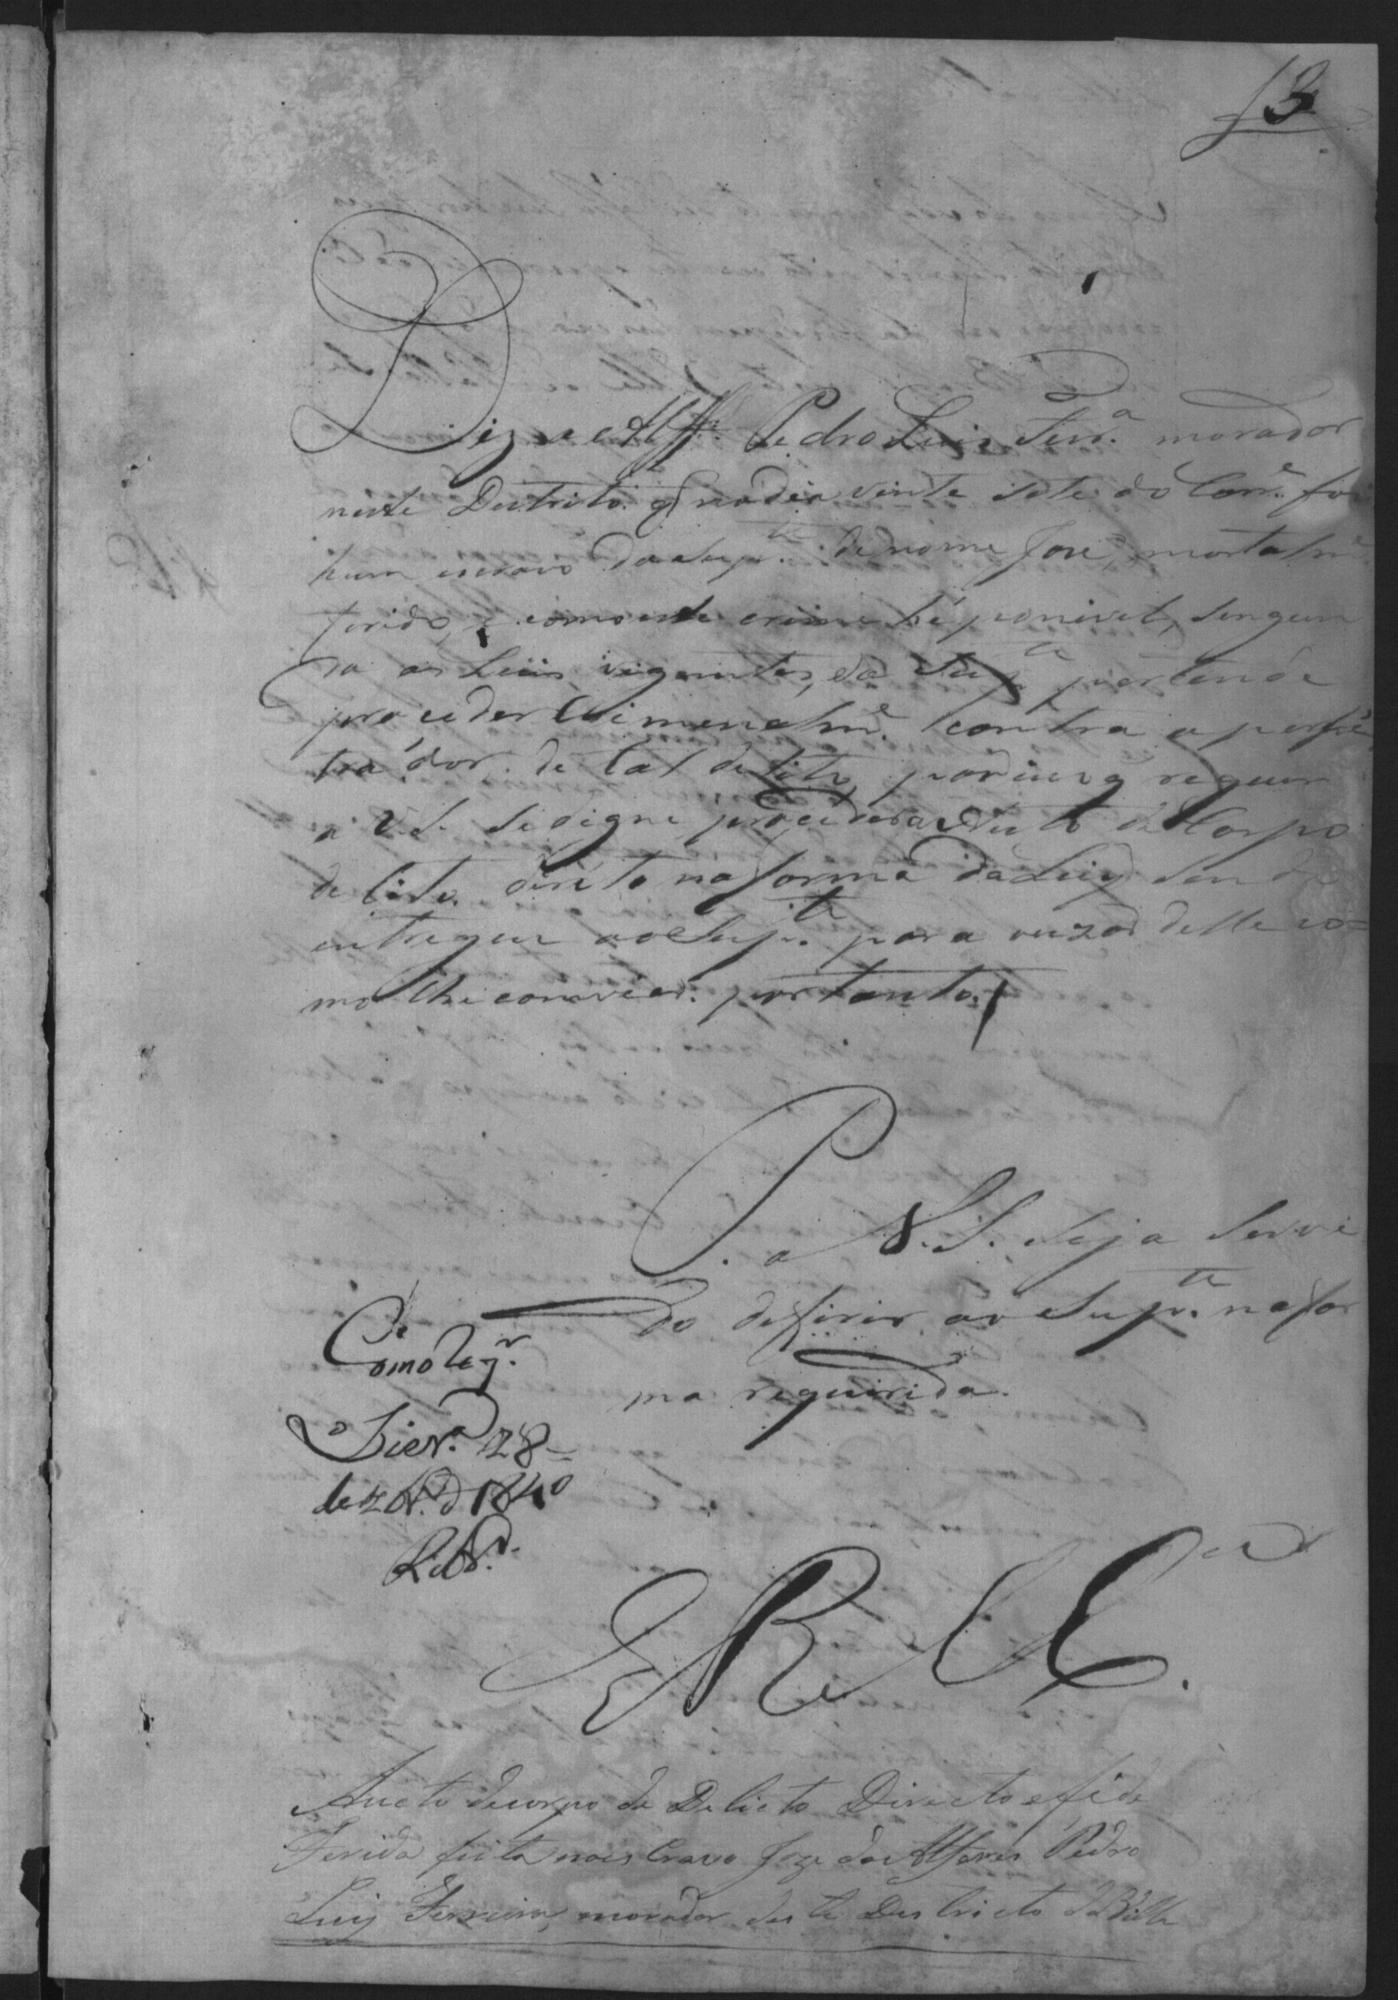 3
Diz o Alfs. Pedro Luis Ferr.ª morador
neste Destrito q no dia vinte sete do Corr.e foi
hum escravo do Sup.te de nome Joze, mortalm.e
ferido, e como este crime hé ponivel, segun
do as Leiis vigentes, e o Sup.te pertende
proceder Crimenalm.e contra o perpe
trador de tal delito, por iço q requer
a V.S. se digne proceder a Auto de Corpo
delito direto na forma da Leiy sendo
entregue ao Sup.te para uzar delle co=
mo lhe convier. portanto
P. a V.S. seja servi
do defirir ao Sup.te na for
ma requirida.
Como reqr.
28
de 1840
E R M.ce
Aucto de corpo de Delicto Directo
Ferida feita no escravo Joze do Alferes Pedro
Luiz Ferreira, morador deste Destricto da Villa